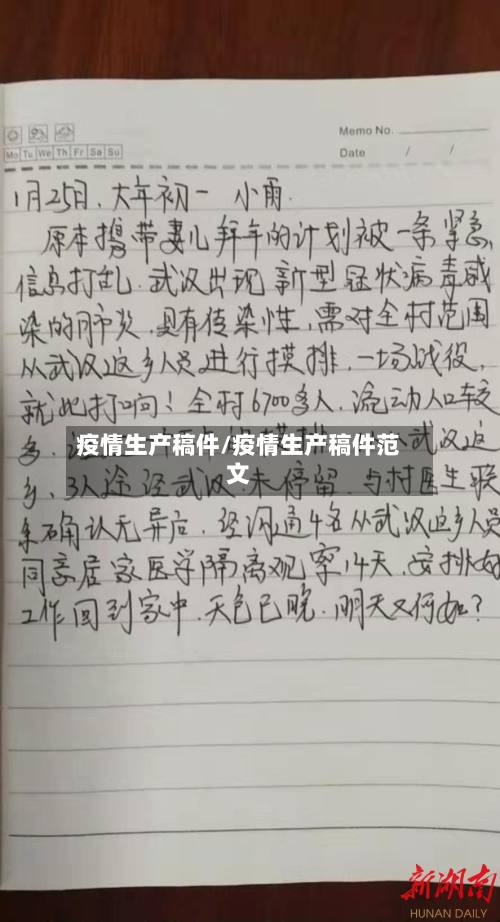 Memo No.
Mo Tu We Th Fr Sa Su
Date / /
1月25日，大年初一 小雨.
原本携带妻儿拜年的计划被一条紧急
信息打乱.武汉出现新型冠状病毒感
染的肺炎.具有传染性,需对全村范围
从武汉返乡人员进行摸排.一场战役,
就此打响！全村6700多人.流动人口较
多.
武汉返
疫情生产稿件/疫情生产稿件范
文
乡,3人途经武汉.未停留.与村医生联
系确认无异后.经沟通4名从武汉返乡人员
同意居家医学隔离观察14天.安排好
工作回到家中.天色已晚.明天又何如？
新湖南
HUNAN DAILY